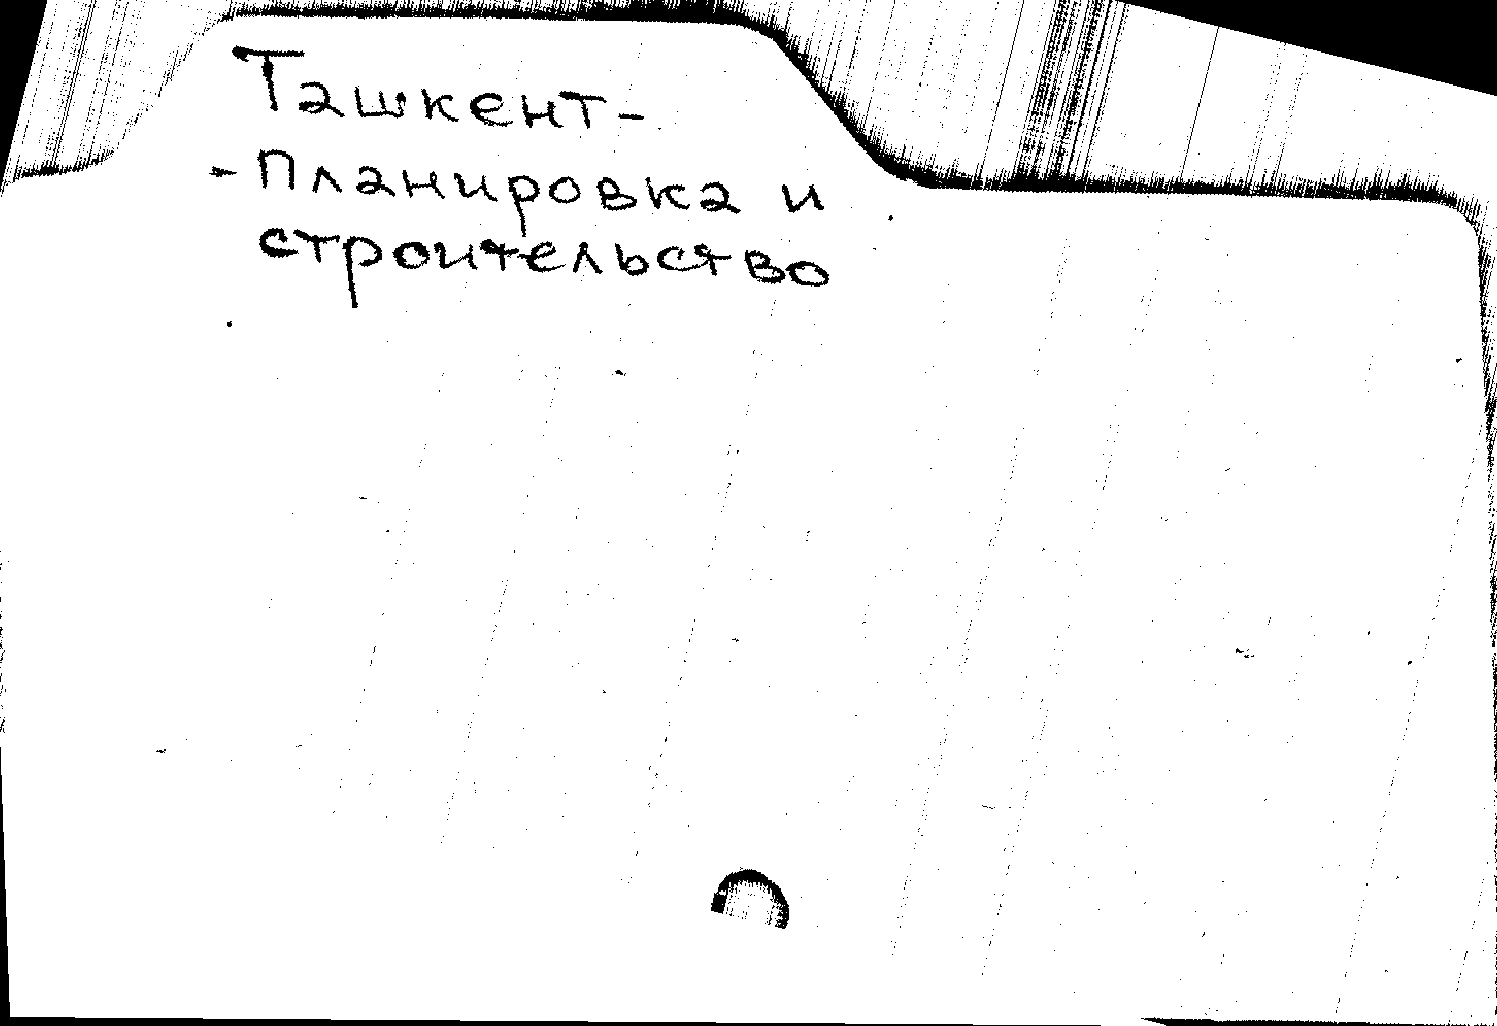 Ташкент-
-Планировка и
строительство